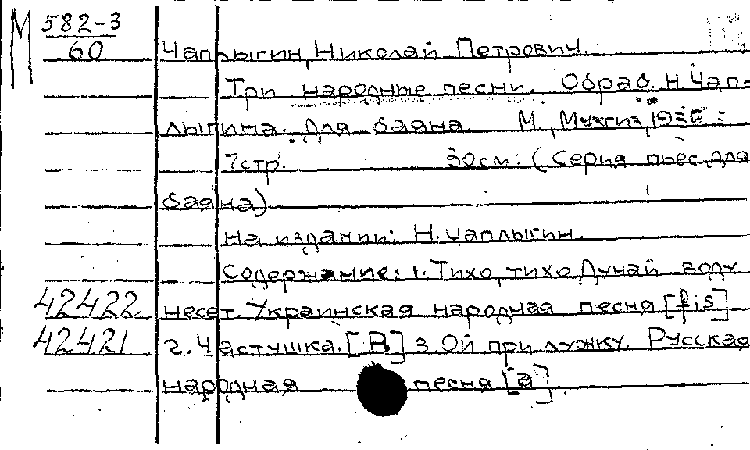 М 582-3
60
Чаплыгин, Николай Петрович.
Три народные песни. Обраб. Н. Чап-
лыгина. Для баяна. М., Музгиз,
7стр. 30см. (Серия пьес для
баяна)
На издании: Н. Чаплыгин.
Содержание: 1. Тихо, тихо Дунай воду
42422 несет. Украинская народная песня [fis]
42421 2. Частушка. [B] 3. Ой при лужку. Русская
народная песня [a]